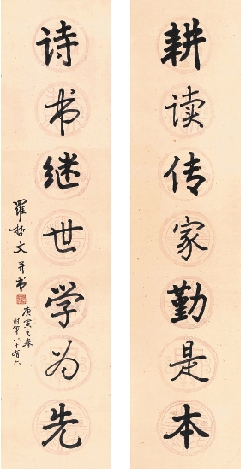 耕读传家勤是本
诗书继世学为先
罗哲文并书
庚寅之春
时年八十有六